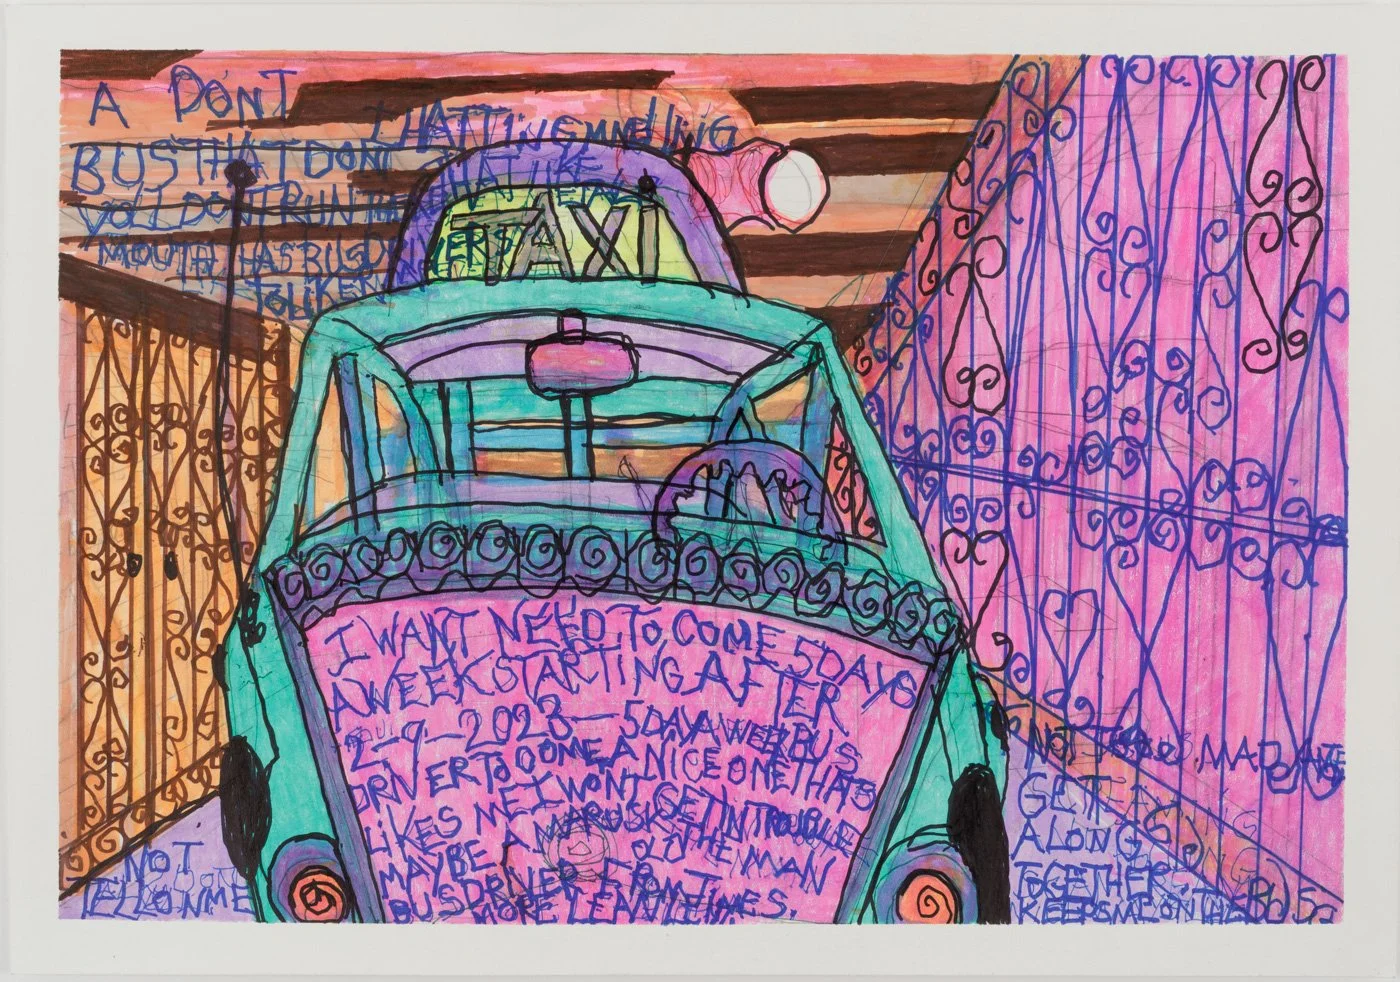 A DON'T
I HATTING
BUS THAT DONT
THAT LIKE
YOLL DONT RUN THE
MOUTH HAS BUS DRIVERS
TO LIKEN
TAXI
I WANT NEED TO COME 5 DAYS
A WEEK STARTING AFTER
2-9-2023-5 DAY A WEEK BUS
DRIVER TO COME A NICE ONE THATS
LIKES ME I WONT GET IN TROUBLE
MAYBE A MAROUSK OLD THE MAN
BUSDRIVER FROM TIMES.
MORE
NOT
TELL ON ME
NOT MAD
GET
ALONG
TOGETHER.
KEEPS ME ON THE BUS